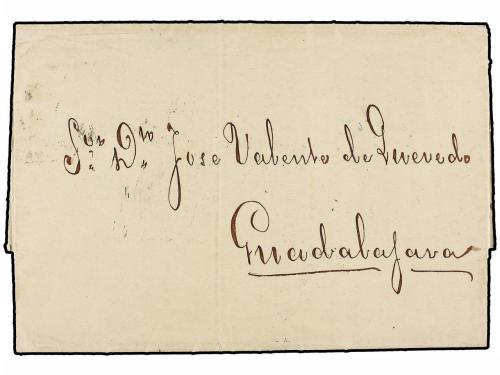 Sor. Dn. Jose Valente de Quevedo
Guadalajara